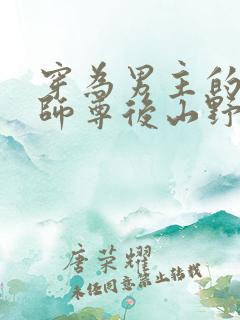 穿為男主的
師尊後山野
唐荣耀
未经同意禁止转载